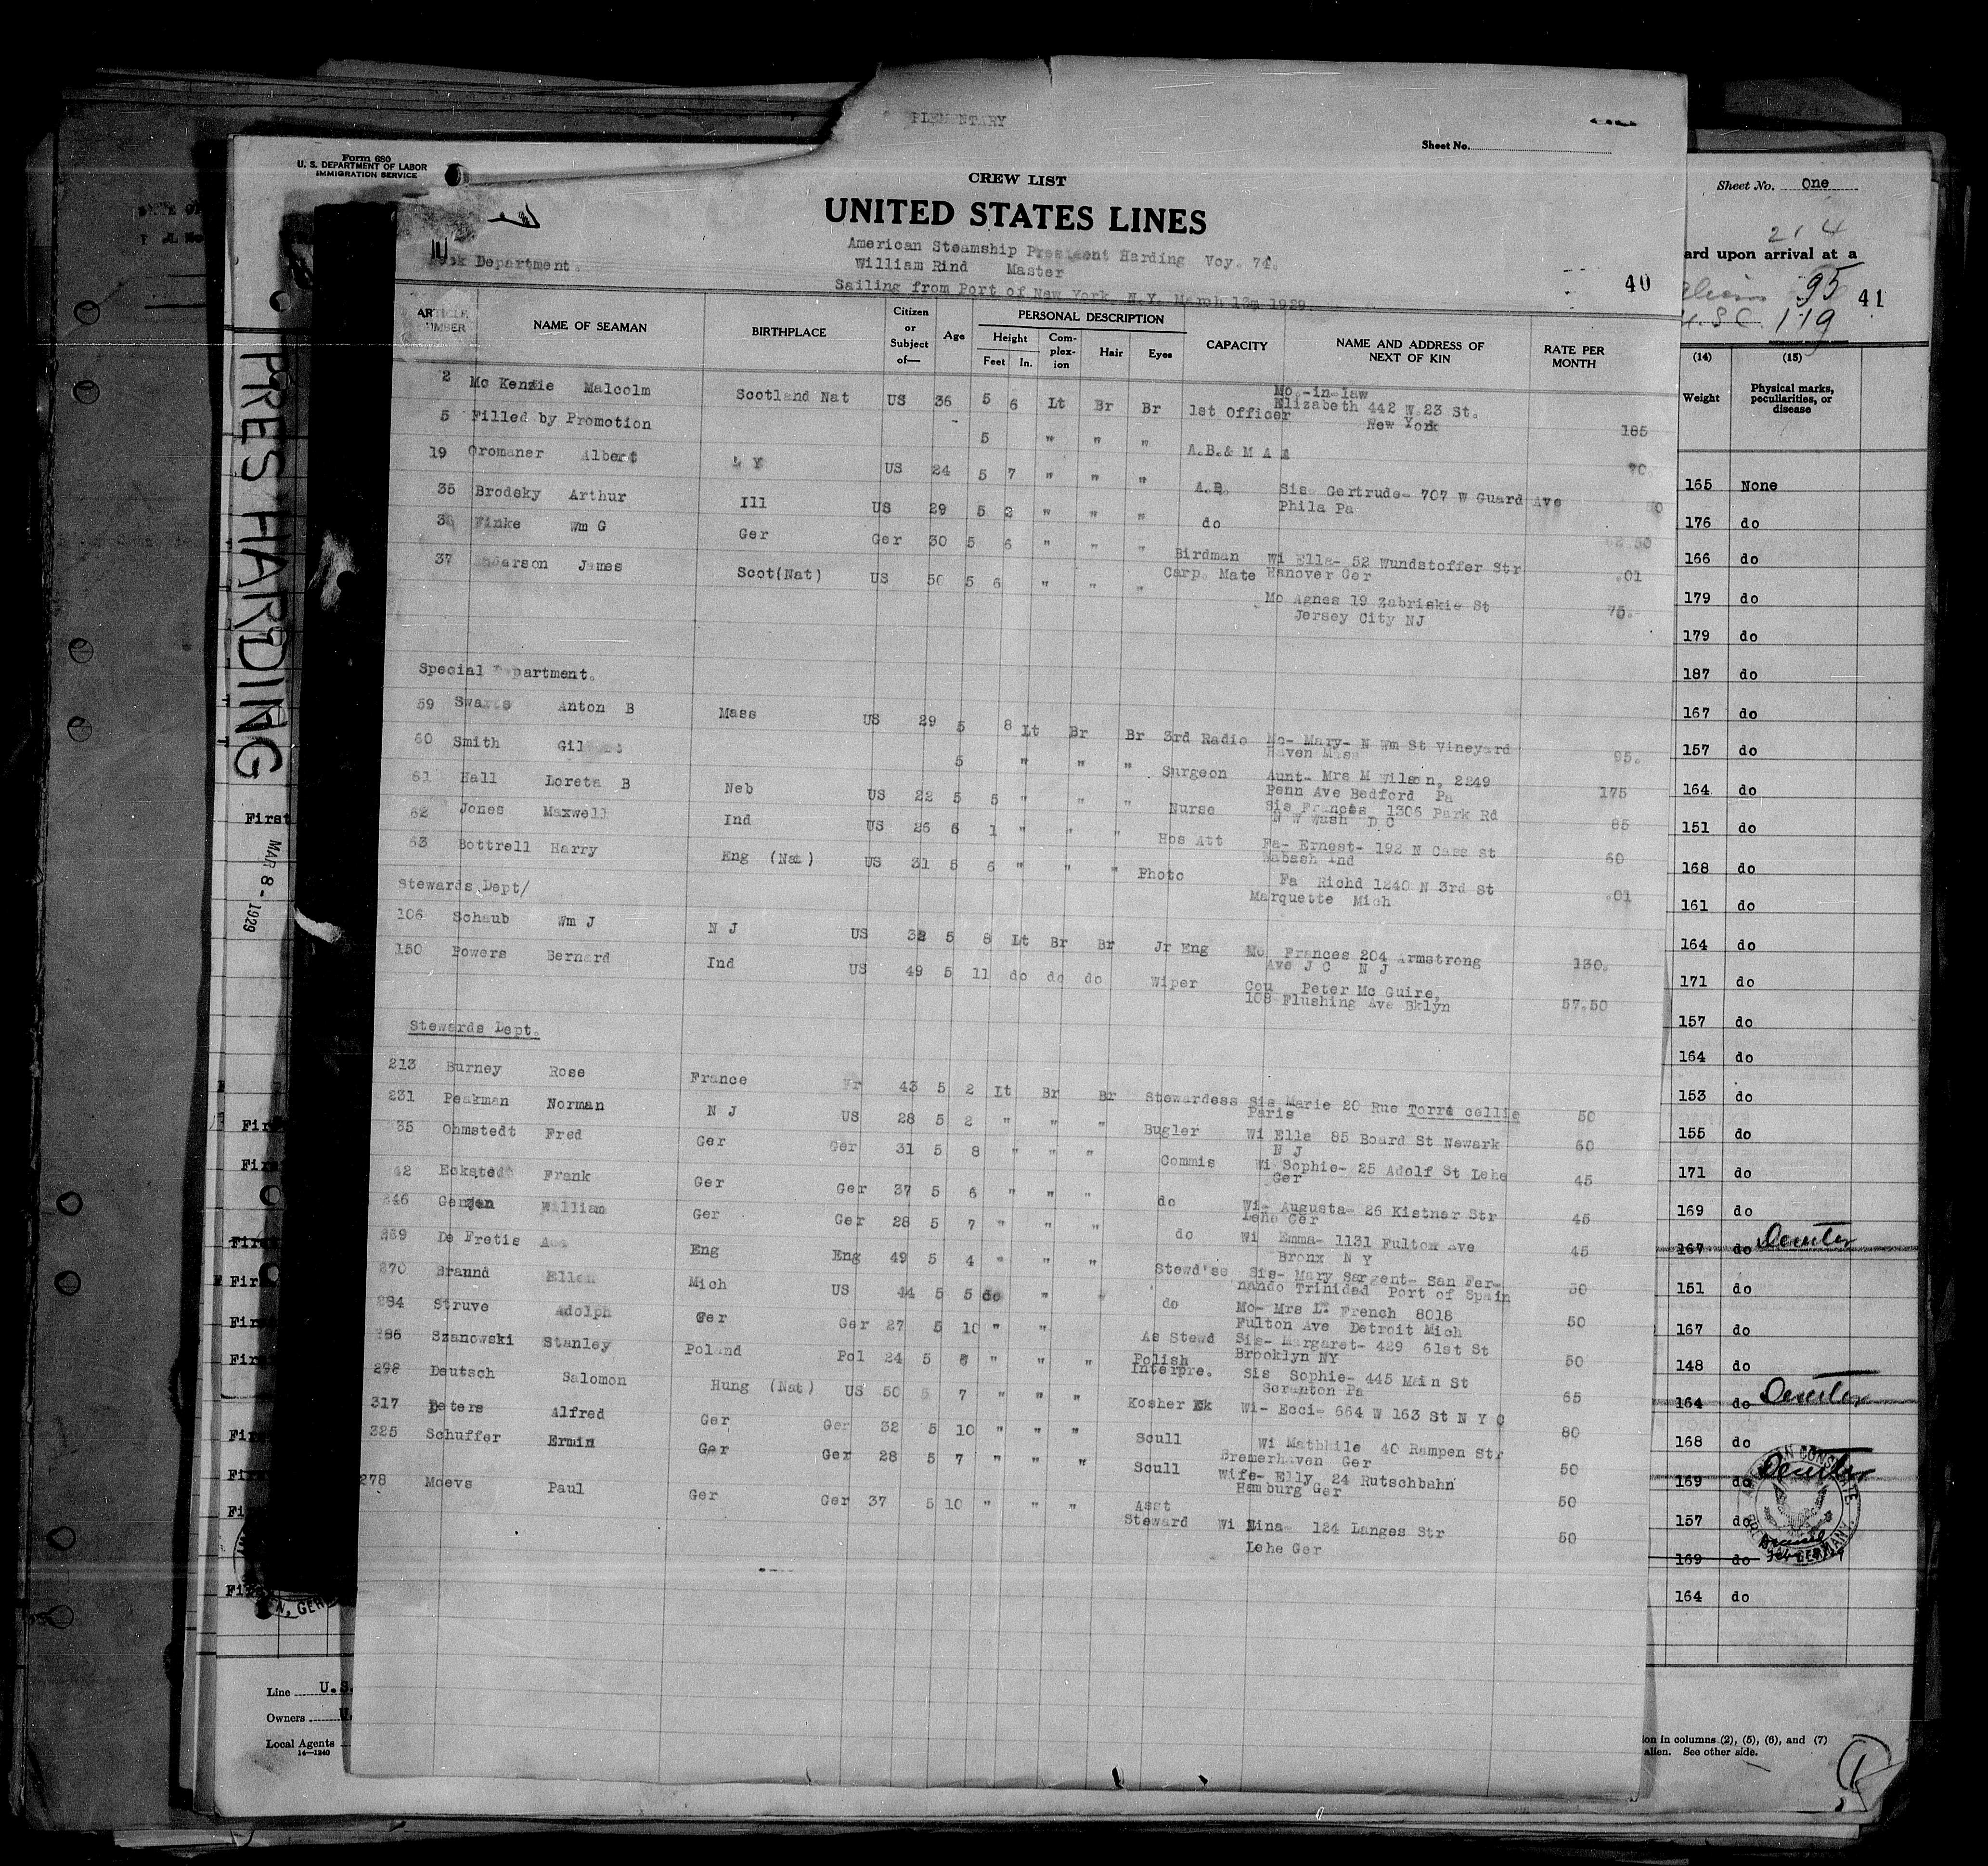 PLEMENTARY
Sheet No.
Form 680
U. S. DEPARTMENT OF LABOR
IMMIGRATION SERVICE
CREW LIST
UNITED STATES LINES
American Steamship President Harding Voy. 74.
William Rind Master
Sailing from Port of New York, N.Y. March 13m 1929.
Department.
40
ARTICLE NUMBER
NAME OF SEAMAN
BIRTHPLACE
Citizen or Subject of—
Age
PERSONAL DESCRIPTION
Height
Feet In.
Complexion
Hair
Eyes
CAPACITY
NAME AND ADDRESS OF NEXT OF KIN
RATE PER MONTH
2 Mc Kenzie Malcolm Scotland Nat US 36 5 6 Lt Br Br 1st Officer Mo.-in-law Elizabeth 442 W.23 St. New York 185
5 Filled by Promotion 5 " " " A.B.& M A A 70
19 Oromaner Albert US 24 5 7 " " " A.B. Sis Gertrude- 707 W Guard Ave Phila Pa
35 Brodsky Arthur Ill US 29 5 " " " do
Finke Wm G Ger Ger 30 5 6 " " " Birdman Wi Ella- 52 Wundstoffer Str Hanover Ger .01
37 James Scot(Nat) US 50 5 6 " " " Carp. Mate Mo Agnes 19 Zabriskie St Jersey City NJ 75.
Special Department.
59 Anton B Mass US 29 5 8 Lt Br Br 3rd Radio Mo- Mary- N Wm St Vineyard Haven Mass 95.
60 Smith 5 " " " Surgeon Aunt- Mrs M Wilson, 2249 Penn Ave Bedford Pa 175
61 Hall Loreta B Neb US 22 5 5 " " " Nurse Sis Frances 1306 Park Rd N W Wash D C 85
62 Jones Maxwell Ind US 26 6 1 " " " Hos Att Fa- Ernest- 192 N Cass St Wabash Ind 60
63 Bottrell Harry Eng (Nat) US 31 5 6 " " " Photo Fa Richd 1240 N 3rd St Marquette Mich .01
Stewards Dept/
106 Schaub Wm J N J US 32 5 8 Lt Br Br Jr Eng Mo Frances 204 Armstrong Ave J C N J 130.
150 Powers Bernard Ind US 49 5 11 do do do Wiper Cou Peter Mc Guire, 108 Flushing Ave Bklyn 57.50
Stewards Dept.
213 Burney Rose France Fr 43 5 2 Lt Br Br Stewardess Sis Marie 20 Rue Torre cellie Paris 50
231 Peakman Norman N J US 28 5 2 " " " Bugler Wi Ella 85 Board St Newark N J 60
35 Ohmstedt Fred Ger Ger 31 5 8 " " " Commis Wi Sophie- 25 Adolf St Lehe Ger 45
42 Frank Ger Ger 37 5 6 " " " do Wi- Augusta- 26 Kistner Str Lehe Ger 45
246 William Ger Ger 28 5 7 " " " do Wi Emma- 1131 Fulton Ave Bronx N Y 45
269 De Fretis Eng Eng 49 5 4 " " " Stewd'ss Sis- Mary Sargent- San Fernando Trinidad Port of Spain 50
270 Brannd Ellen Mich US 44 5 5 do " " do Mo- Mrs L. French 8018 Fulton Ave Detroit Mich 50
284 Struve Adolph Ger Ger 27 5 10 " " As Stewd Sis- Margaret- 429 61st St Brooklyn NY 50
286 Szanowski Stanley Poland Pol 24 5 6 " " " Polish Interpre. Sis Sophie- 445 Main St Scranton Pa 65
298 Deutsch Salomon Hung (Nat) US 50 5 7 " " " Kosher Ck Wi- Ecci- 664 W 163 St N Y C 80
317 Peters Alfred Ger Ger 32 5 10 " " " Scull Wi Mathhile 40 Rampen Str Bremerhaven Ger 50
325 Schuffer Ermin Ger Ger 28 5 7 " " " Scull Wife- Elly 24 Rutschbahn Hamburg Ger 50
278 Moevs Paul Ger Ger 37 5 10 " " " Asst Steward Wi Mina- 124 Langes Str Lehe Ger 50
PRES HARDING
First
MAR 8 - 1929
Line U.S.
Owners U.
Local Agents
14—1240
Sheet No. One
214
ard upon arrival at a
95
41
U.S.C. 119
(14) (15)
Weight
Physical marks, peculiarities, or disease
165 None
176 do
166 do
179 do
179 do
187 do
167 do
157 do
164 do
151 do
168 do
161 do
164 do
171 do
157 do
164 do
153 do
155 do
171 do
169 do
167 do
151 do
167 do
148 do
164 do
168 do
169 do
157 do
169 do
164 do
AMERICAN CONSULATE
GERMANY
ion in columns (2), (5), (6), and (7)
alien. See other side.